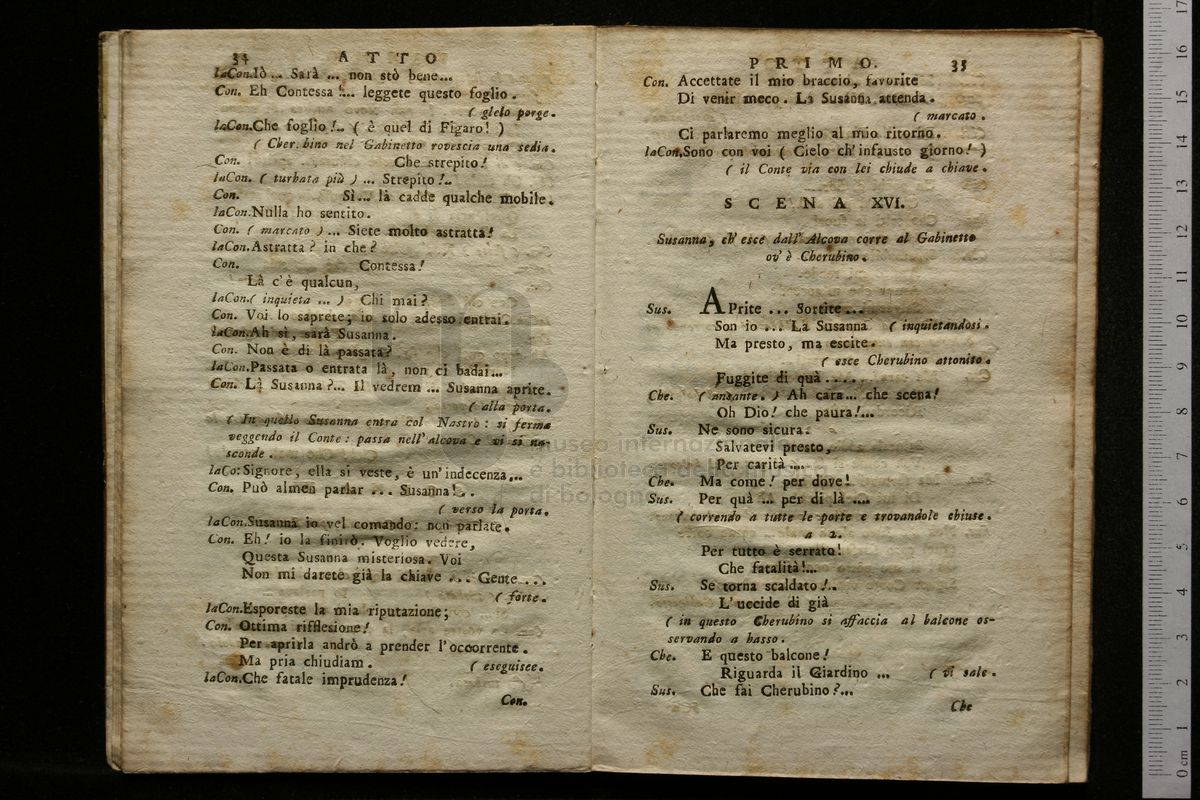 34 ATTO
laCon.Iò ... Sarà ... non stò bene...
Con. Eh Contessa !... leggete questo foglio.
( glelo porge.
laCon.Che foglio!.. ( è quel di Figaro! )
( Cher.bino nel Gabinetto rovescia una sedia.
Con. Che strepito!
laCon. ( turbata più ) ... Strepito!..
Con. Sì... là cadde qualche mobile.
laCon.Nulla ho sentito.
Con. ( marcato ) ... Siete molto astratta!
laCon.Astratta? in che?
Con. Contessa!
Là c'è qualcun,
laCon.( inquieta ... ) Chi mai?
Con. Voi lo saprete; io solo adesso entrai.
laCon.Ah sì, sarà Susanna.
Con. Non è di là passata?
laCon.Passata o entrata là, non ci badai...
Con. Là Susanna?... Il vedrem ... Susanna aprite.
( alla porta.
( In quello Susanna entra col Nastro: si ferma
veggendo il Conte: passa nell'alcova e vi si na-
sconde.
laCo:Signore, ella si veste, è un'indecenza...
Con. Può almen parlar ... Susanna!...
( verso la porta.
laCon.Susanna io vel comando: non parlate.
Con. Eh! io la finirò. Voglio vedere,
Questa Susanna misteriosa. Voi
Non mi darete già la chiave ... Gente ...
( forte.
laCon.Esporeste la mia riputazione;
Con. Ottima rifflesione!
Per aprirla andrò a prender l'occorrente.
Ma pria chiudiam. ( eseguisce.
laCon.Che fatale imprudenza!
Con.
PRIMO. 35
Con. Accettate il mio braccio, favorite
Di venir meco. La Susanna attenda.
( marcato.
Ci parlaremo meglio al mio ritorno.
laCon.Sono con voi ( Cielo ch'infausto giorno! )
( il Conte via con lei chiude a chiave.
SCENA XVI.
Susanna, ch'esce dall'Alcova corre al Gabinetto
ov'è Cherubino.
Sus. APrite ... Sortite ...
Son io ... La Susanna ( inquietandosi.
Ma presto, ma escite.
( esce Cherubino attonito.
Fuggite di quà ....
Che. ( ansante. ) Ah cara... che scena!
Oh Dio! che paura!...
Sus. Ne sono sicura.
Salvatevi presto,
Per carità ....
Che. Ma come! per dove!
Sus. Per quà ... per di là ....
( correndo a tutte le porte e trovandole chiuse.
a 2.
Per tutto è serrato!
Che fatalità!...
Sus. Se torna scaldato!..
L'uccide di già
( in questo Cherubino si affaccia al balcone os-
servando a basso.
Che. E questo balcone!
Riguarda il Giardino ... ( vi sale.
Sus. Che fai Cherubino?...
Che
museo internazionale
e biblioteca della musica
di bologna